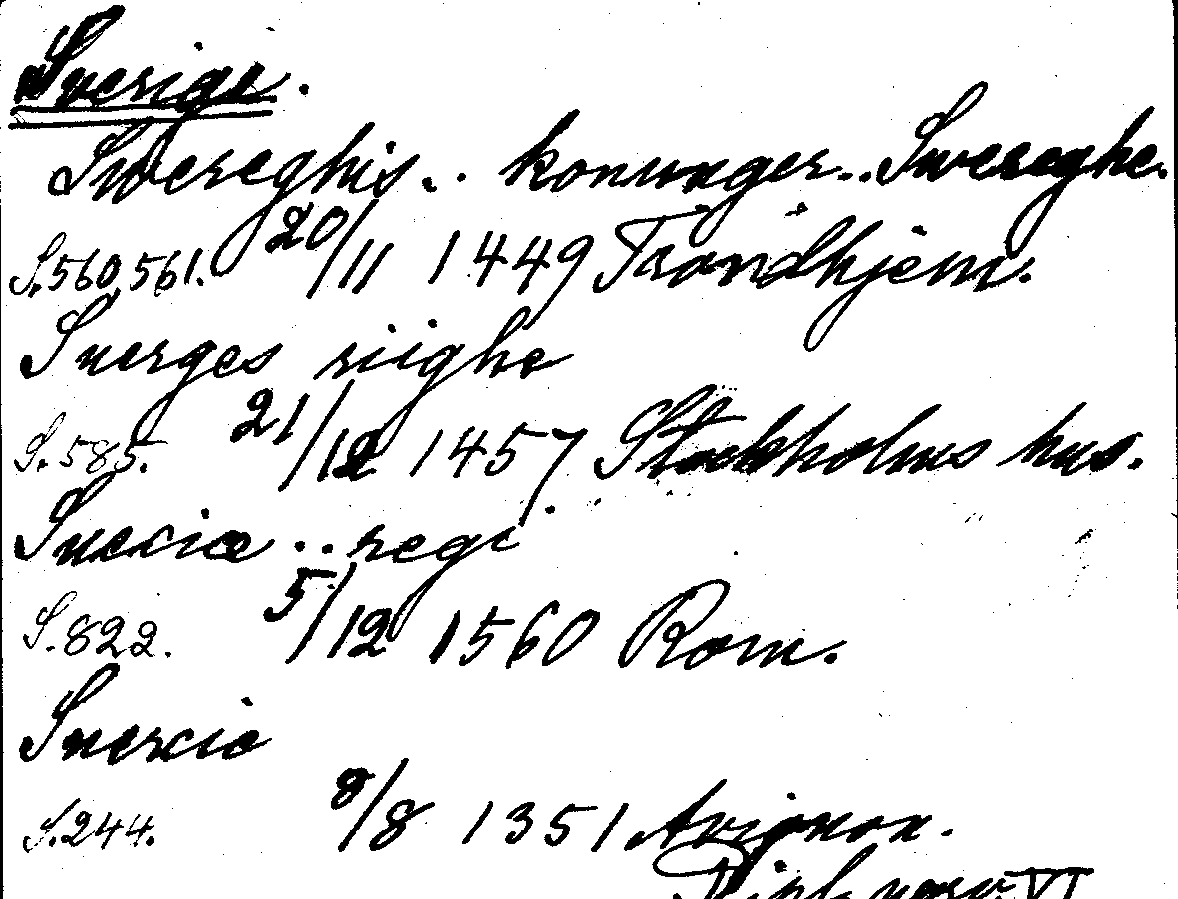 Sverige.
Swereghis .. konunger .. Swereghe.
S. 560, 561. 20/11 1449 Trondhjem.
Suerges riighe
S. 585. 21/12 1457 Stockholms hus.
Sueciæ .. regi
S. 822. 5/12 1560 Rom.
Suecie
S. 244. 8/8 1351 Avignon.
Dipl. norv. VI